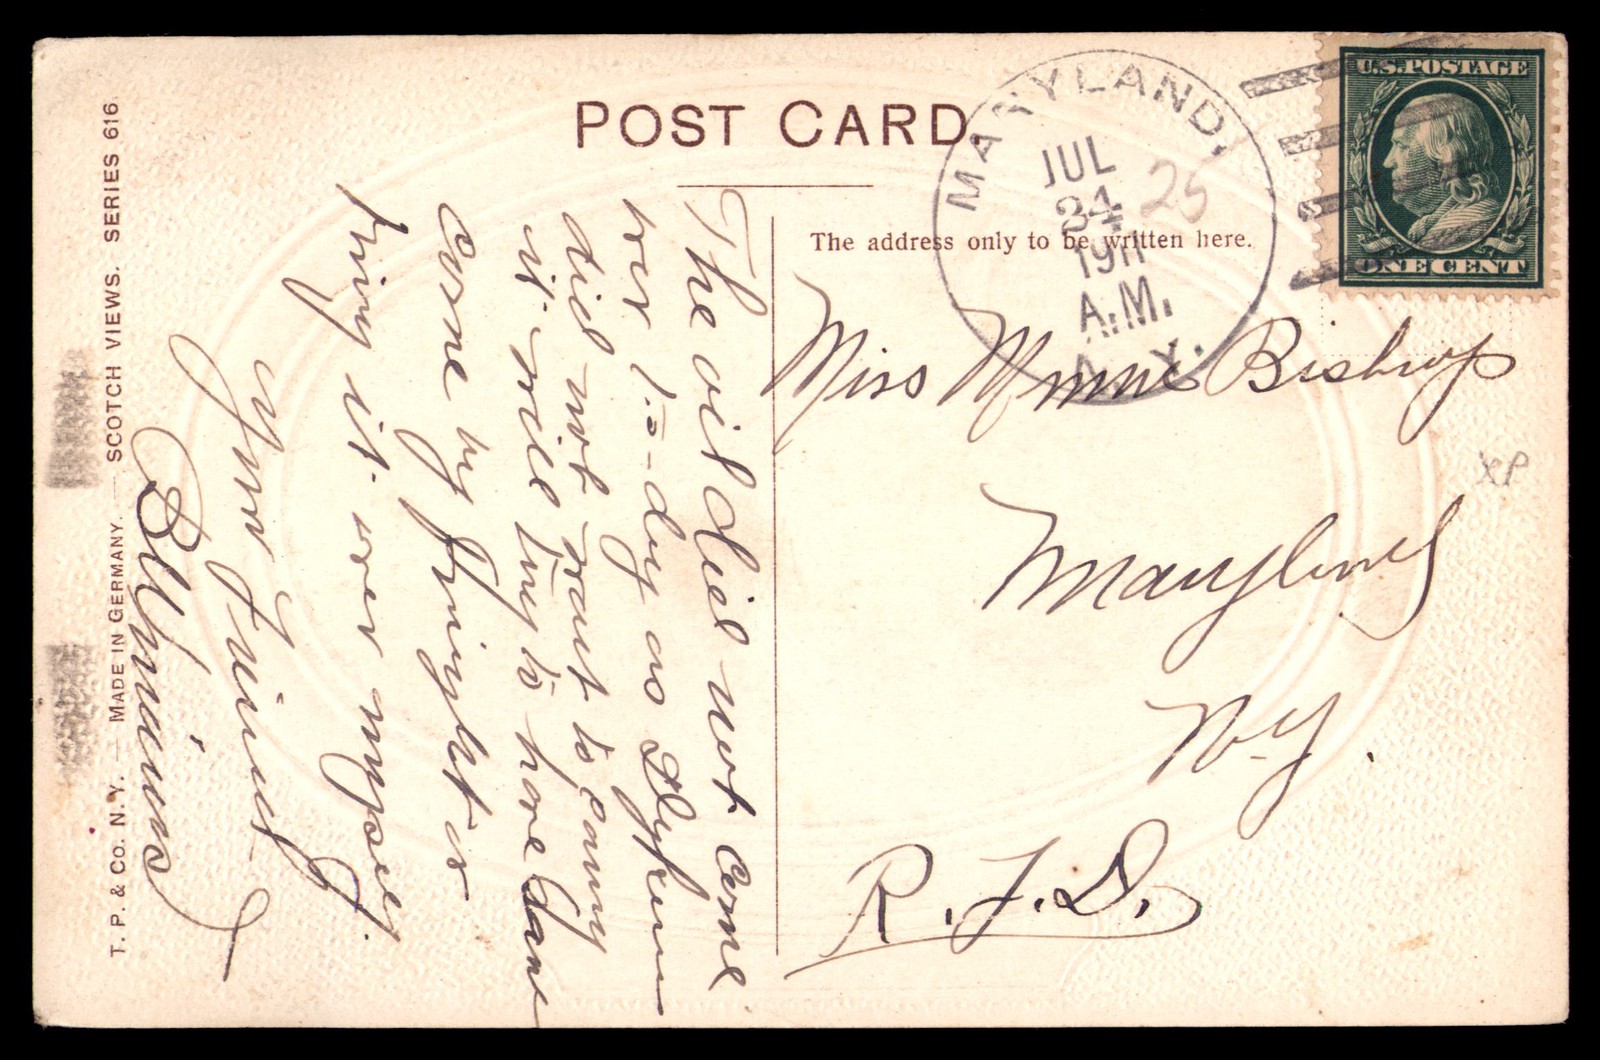 POST CARD
MARYLAND.
JUL
24 25
1911
A.M.
N.Y.
U.S. POSTAGE
ONE CENT
The address only to be written here.
Miss Minnie Bishop
Maryland
N.Y.
R.F.D.
XP
The oil did not come
over to-day as
did not want to carry
it will try to have
come by freight is
it over
your friend
T. P. & Co. N.Y. — MADE IN GERMANY. — SCOTCH VIEWS. SERIES 616.